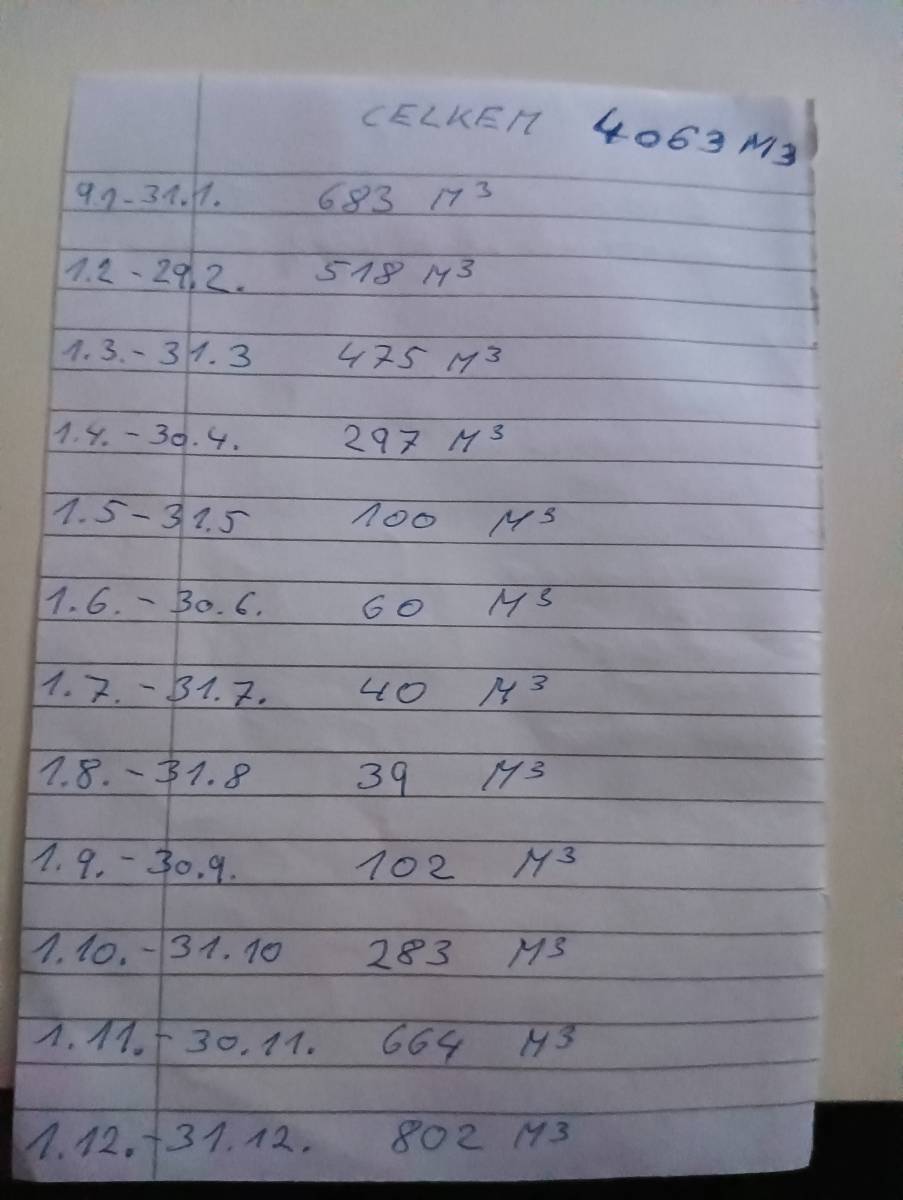 CELKEM 4063 M3
9.1-31.1. 683 M³
1.2-29.2. 518 M³
1.3.-31.3 475 M³
1.4.-30.4. 297 M³
1.5-31.5 100 M³
1.6.-30.6. 60 M³
1.7.-31.7. 40 M³
1.8.-31.8 39 M³
1.9.-30.9. 102 M³
1.10.-31.10 283 M³
1.11.-30.11. 664 M³
1.12.-31.12. 802 M3